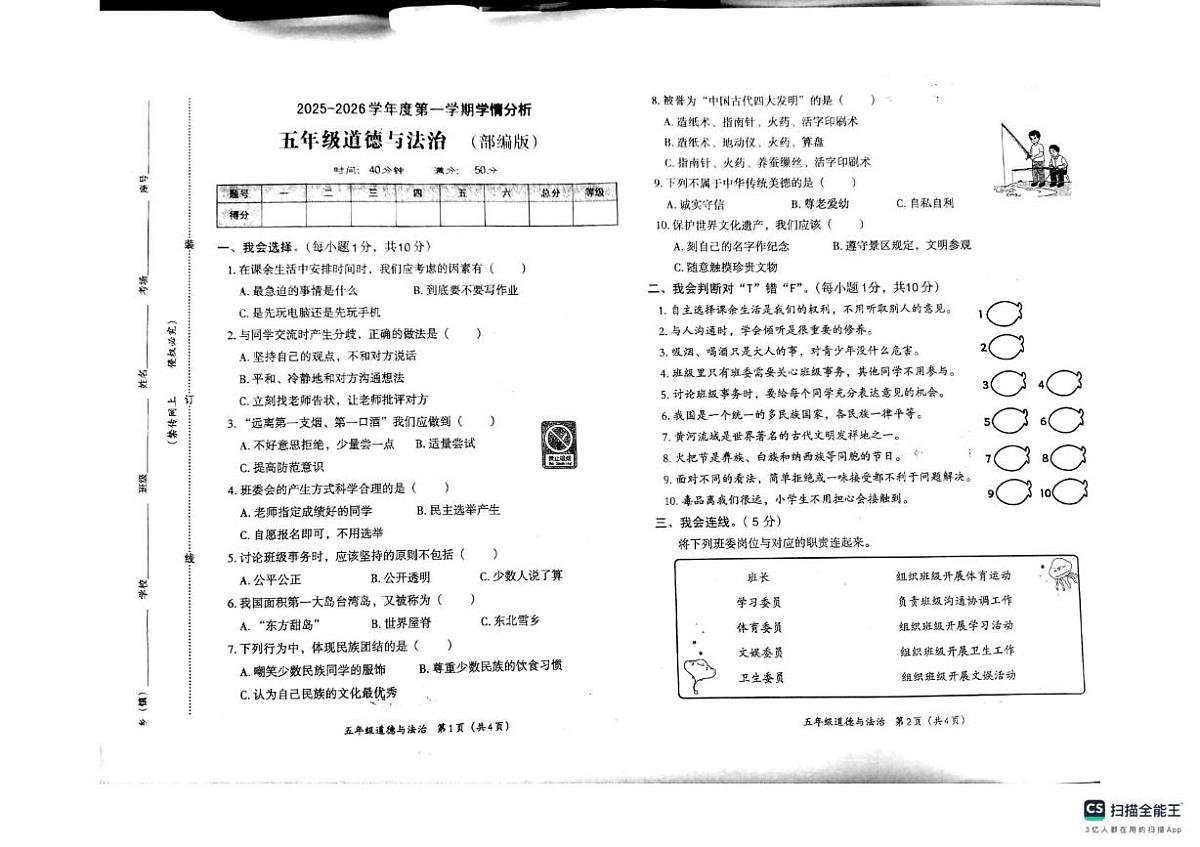 2025-2026学年度第一学期学情分析
五年级道德与法治 （部编版）
时间： 40分钟 满分： 50分
题号 一 二 三 四 五 六 总分 等级
得分
一、我会选择。（每小题1分，共10分）
1.在课余生活中安排时间时，我们应考虑的因素有（ ）
A.最急迫的事情是什么 B.到底要不要写作业
C.是先玩电脑还是先玩手机
2.与同学交流时产生分歧，正确的做法是（ ）
A.坚持自己的观点，不和对方说话
B.平和、冷静地和对方沟通想法
C.立刻找老师告状，让老师批评对方
3.“远离第一支烟、第一口酒”我们应做到（ ）
A.不好意思拒绝，少量尝一点 B.适量尝试
C.提高防范意识
禁止吸烟
No Smoking
4.班委会的产生方式科学合理的是（ ）
A.老师指定成绩好的同学 B.民主选举产生
C.自愿报名即可，不用选举
5.讨论班级事务时，应该坚持的原则不包括（ ）
A.公平公正 B.公开透明 C.少数人说了算
6.我国面积第一大岛台湾岛，又被称为（ ）
A.“东方甜岛” B.世界屋脊 C.东北雪乡
7.下列行为中，体现民族团结的是（ ）
A.嘲笑少数民族同学的服饰 B.尊重少数民族的饮食习惯
C.认为自己民族的文化最优秀
五年级道德与法治 第1页（共4页）
乡（镇） 学校 班级 姓名 考场 座号
（禁传网上 侵权必究）
装 订 线
8.被誉为“中国古代四大发明”的是（ ）
A.造纸术、指南针、火药、活字印刷术
B.造纸术、地动仪、火药、算盘
C.指南针、火药、养蚕缫丝、活字印刷术
9.下列不属于中华传统美德的是（ ）
A.诚实守信 B.尊老爱幼 C.自私自利
10.保护世界文化遗产，我们应该（ ）
A.刻自己的名字作纪念 B.遵守景区规定，文明参观
C.随意触摸珍贵文物
二、我会判断对“T”错“F”。（每小题1分，共10分）
1.自主选择课余生活是我们的权利，不用听取别人的意见。
2.与人沟通时，学会倾听是很重要的修养。
3.吸烟、喝酒只是大人的事，对青少年没什么危害。
4.班级里只有班委需要关心班级事务，其他同学不用参与。
5.讨论班级事务时，要给每个同学充分表达意见的机会。
6.我国是一个统一的多民族国家，各民族一律平等。
7.黄河流域是世界著名的古代文明发祥地之一。
8.火把节是彝族、白族和纳西族等同胞的节日。
9.面对不同的看法，简单拒绝或一味接受都不利于问题解决。
10.毒品离我们很远，小学生不用担心会接触到。
1
2
3 4
5 6
7 8
9 10
三、我会连线。（5分）
将下列班委岗位与对应的职责连起来。
班长 组织班级开展体育运动
学习委员 负责班级沟通协调工作
体育委员 组织班级开展学习活动
文娱委员 组织班级开展卫生工作
卫生委员 组织班级开展文娱活动
五年级道德与法治 第2页（共4页）
CS 扫描全能王
3亿人都在用的扫描App